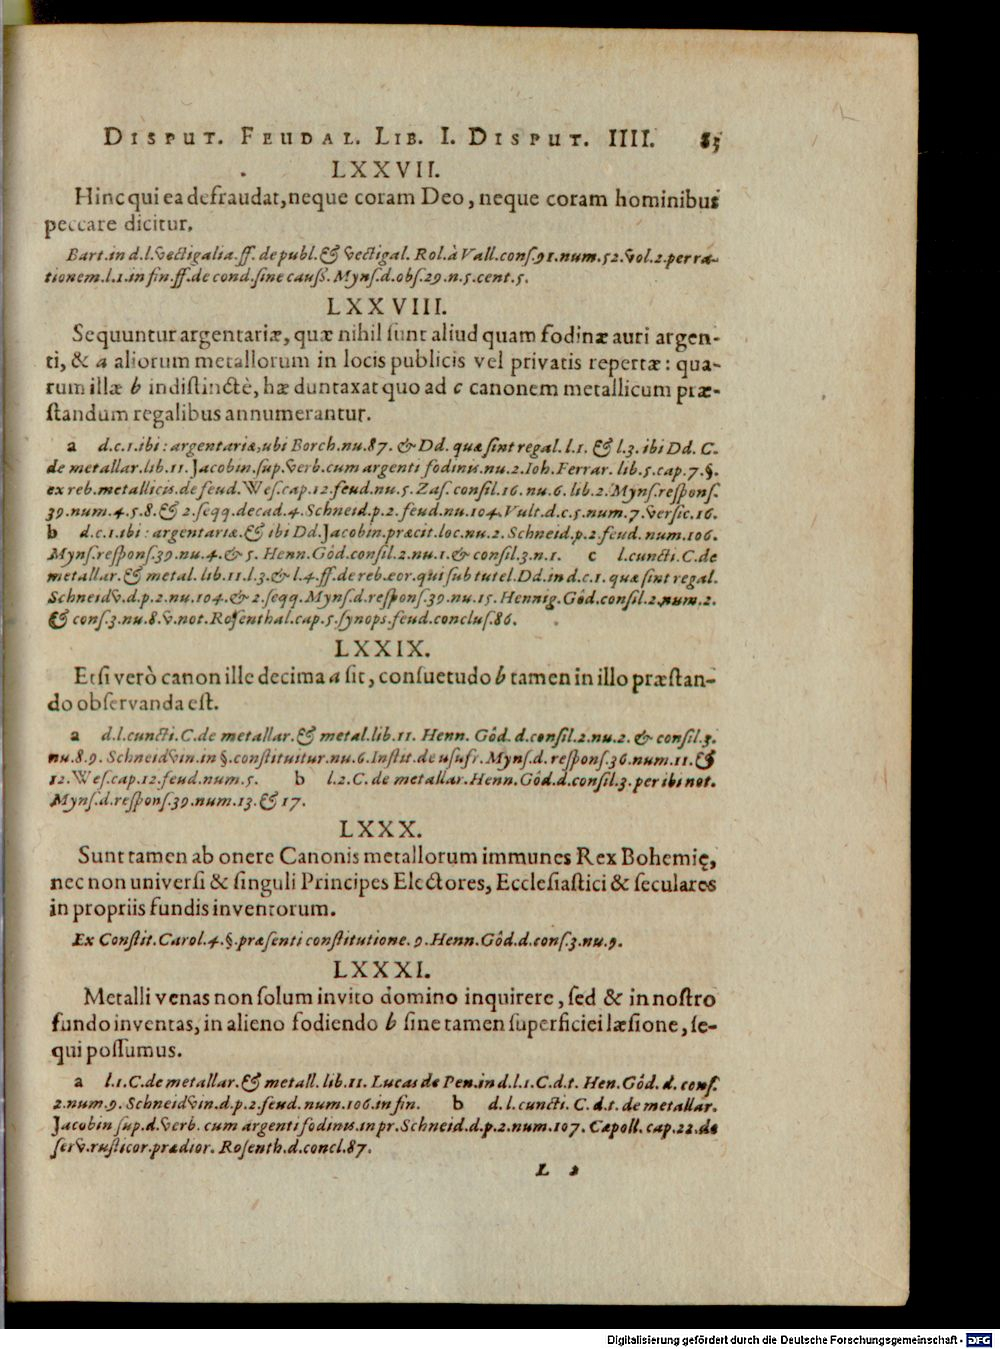 DISPUT. FEUDAL. LIB. I. DISPUT. IIII. 83
LXXVII.
Hinc qui ea defraudat, neque coram Deo, neque coram hominibus
peccare dicitur.
Bart. in d.l. vectigalia. ff. de publ. & vectigal. Rol. à Vall. cons. 91. num. 52. vol. 2. per ra-
tionem. l. 1. in fin. ff. de cond. sine causs. Myns. d. obs. 29. n. 5. cent. 5.
LXXVIII.
Sequuntur argentariæ, quæ nihil sunt aliud quam fodinæ auri argen-
ti, & a aliorum metallorum in locis publicis vel privatis repertæ: qua-
rum illæ b indistinctè, hæ duntaxat quo ad c canonem metallicum præ-
standum regalibus annumerantur.
a d.c.1. ibi: argentariæ, ubi Borch. nu. 87. & Dd. quæ sint regal. l. 1. & l. 3. ibi Dd. C.
de metallar. lib. 11. Jacobin. sup. verb. cum argenti fodinis. nu. 2. Ioh. Ferrar. lib. 5. cap. 7. §.
ex reb. metallicis. de feud. Wes. cap. 12. feud. nu. 5. Zas. consil. 16. nu. 6. lib. 2. Myns. respons.
39. num. 4. 5. 8. & 2. seqq. decad. 4. Schneid. p. 2. feud. nu. 104. Vult. d. c. 5. num. 7. versic. 16.
b d.c.1. ibi: argentariæ. & ibi Dd. Jacobin. præcit. loc. nu. 2. Schneid. p. 2. feud. num. 106.
Myns. respons. 39. nu. 4. & 5. Henn. Göd. consil. 2. nu. 1. & consil. 3. n. 1. c l. cuncti. C. de
metallar. & metal. lib. 11. l. 3. & l. 4. ff. de reb. eor. qui sub tutel. Dd. in d. c. 1. quæ sint regal.
Schneidv. d. p. 2. nu. 104. & 2. seqq. Myns. d. respons. 39. nu. 15. Hennig. Göd. consil. 2. num. 2.
& cons. 3. nu. 8. v. not. Rosenthal. cap. 5. synops. feud. conclus. 86.
LXXIX.
Etsi verò canon ille decima a sit, consuetudo b tamen in illo præstan-
do observanda est.
a d. l. cuncti. C. de metallar. & metal. lib. 11. Henn. Göd. d. consil. 2. nu. 2. & consil. 3.
nu. 8. 9. Schneidvin. in §. constituitur. nu. 6. Instit. de usufr. Myns. d. respons. 36. num. 11. &
12. Wes. cap. 12. feud. num. 5. b l. 2. C. de metallar. Henn. Göd. d. consil. 3. per ibi not.
Myns. d. respons. 39. num. 13. & 17.
LXXX.
Sunt tamen ab onere Canonis metallorum immunes Rex Bohemię,
nec non universi & singuli Principes Electores, Ecclesiastici & seculares
in propriis fundis inventorum.
Ex Constit. Carol. 4. §. præsenti constitutione. 9. Henn. Göd. d. cons. 3. nu. 9.
LXXXI.
Metalli venas non solum invito domino inquirere, sed & in nostro
fundo inventas, in alieno fodiendo b sine tamen superficiei læsione, se-
qui possumus.
a l. 1. C. de metallar. & metall. lib. 11. Lucas de Pen. in d. l. 1. C. d. t. Hen. Göd. d. cons.
2. num. 9. Schneidvin. d. p. 2. feud. num. 106. in fin. b d. l. cuncti. C. d. t. de metallar.
Jacobin sup. d. verb. cum argenti fodinis. in pr. Schneid. d. p. 2. num. 107. Capoll. cap. 22. de
serv. rusticor. prædior. Rosenth. d. concl. 87.
L 2
Digitalisierung gefördert durch die Deutsche Forschungsgemeinschaft - DFG